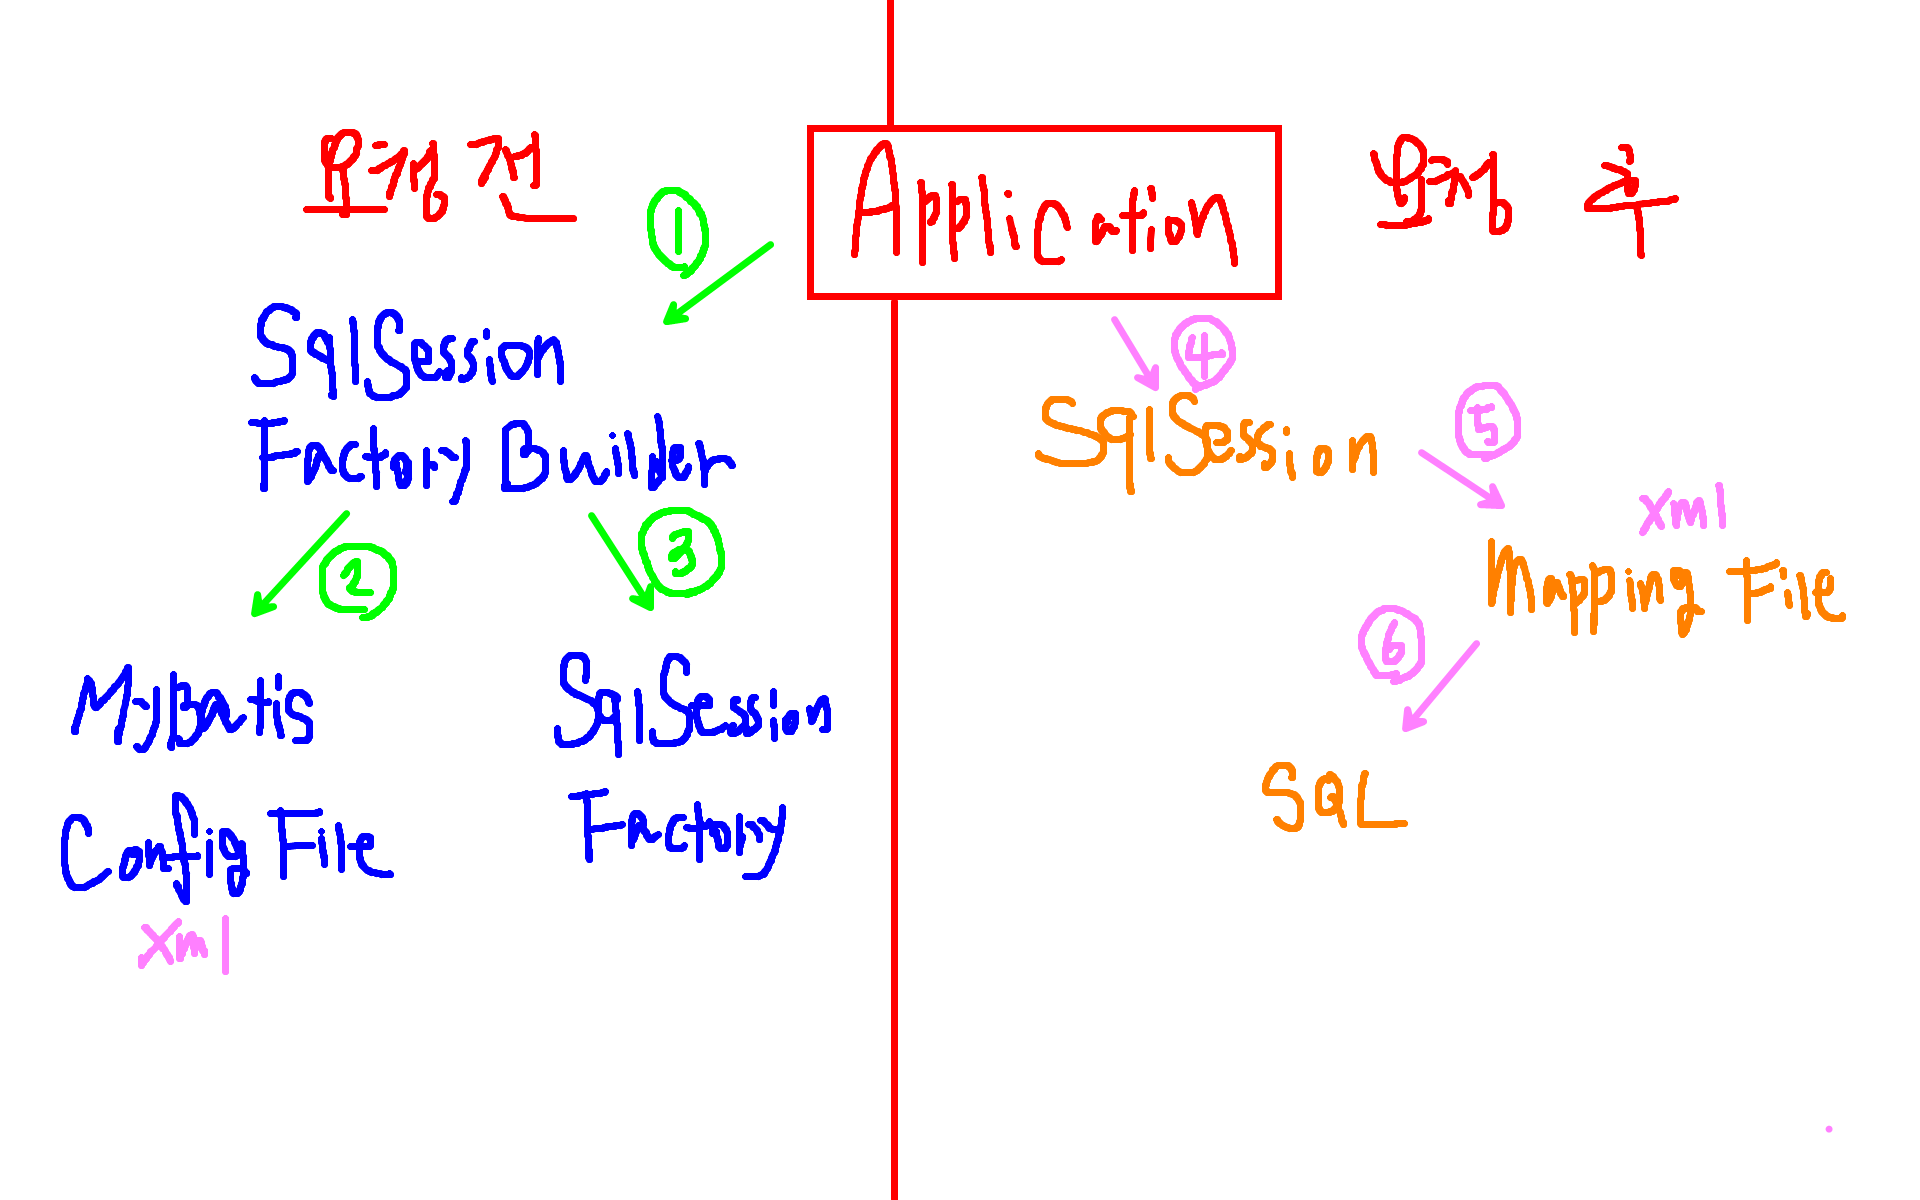 요청 전
Application
요청 후
①
SqlSession
Factory Builder
②
③
MyBatis
Config File
xml
SqlSession
Factory
④
SqlSession
⑤
xml
Mapping File
⑥
SQL